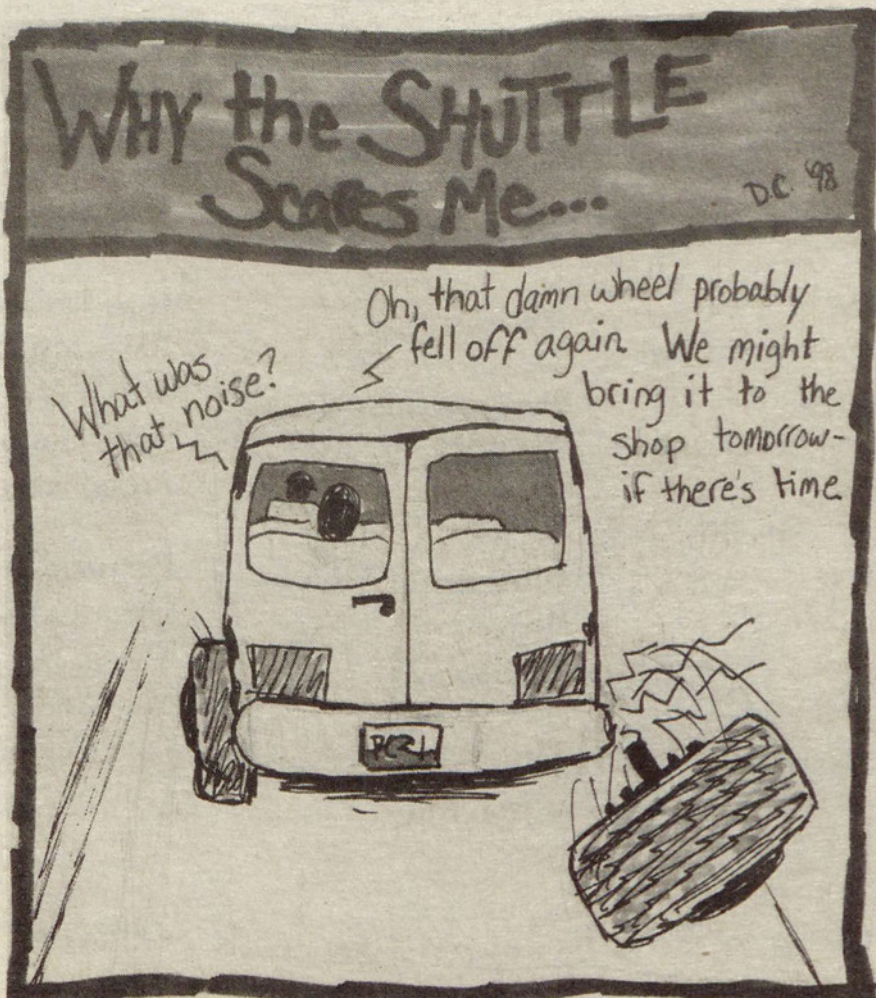 WHY the SHUTTLE
Scares Me...
D.C. '98
What was
that noise?
Oh, that damn wheel probably
fell off again. We might
bring it to the
shop tomorrow-
if there's time